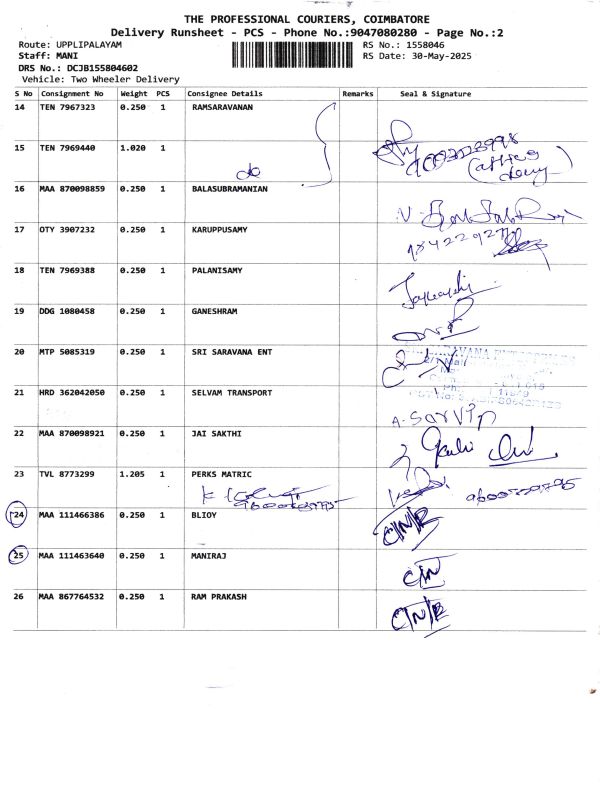 THE PROFESSIONAL COURIERS, COIMBATORE
Delivery Runsheet - PCS - Phone No.:9047080280 - Page No.:2
Route: UPPLIPALAYAM RS No.: 1558046
Staff: MANI RS Date: 30-May-2025
DRS No.: DCJB155804602
Vehicle: Two Wheeler Delivery
S No Consignment No Weight PCS Consignee Details Remarks Seal & Signature
14 TEN 7967323 0.250 1 RAMSARAVANAN
15 TEN 7969440 1.020 1
do
16 MAA 870098859 0.250 1 BALASUBRAMANIAN
17 OTY 3907232 0.250 1 KARUPPUSAMY
18 TEN 7969388 0.250 1 PALANISAMY
19 DDG 1080458 0.250 1 GANESHRAM
20 MTP 5085319 0.250 1 SRI SARAVANA ENT
21 HRD 362042050 0.250 1 SELVAM TRANSPORT
22 MAA 870098921 0.250 1 JAI SAKTHI
23 TVL 8773299 1.205 1 PERKS MATRIC
24 MAA 111466386 0.250 1 BLIOY
25 MAA 111463640 0.250 1 MANIRAJ
26 MAA 867764532 0.250 1 RAM PRAKASH